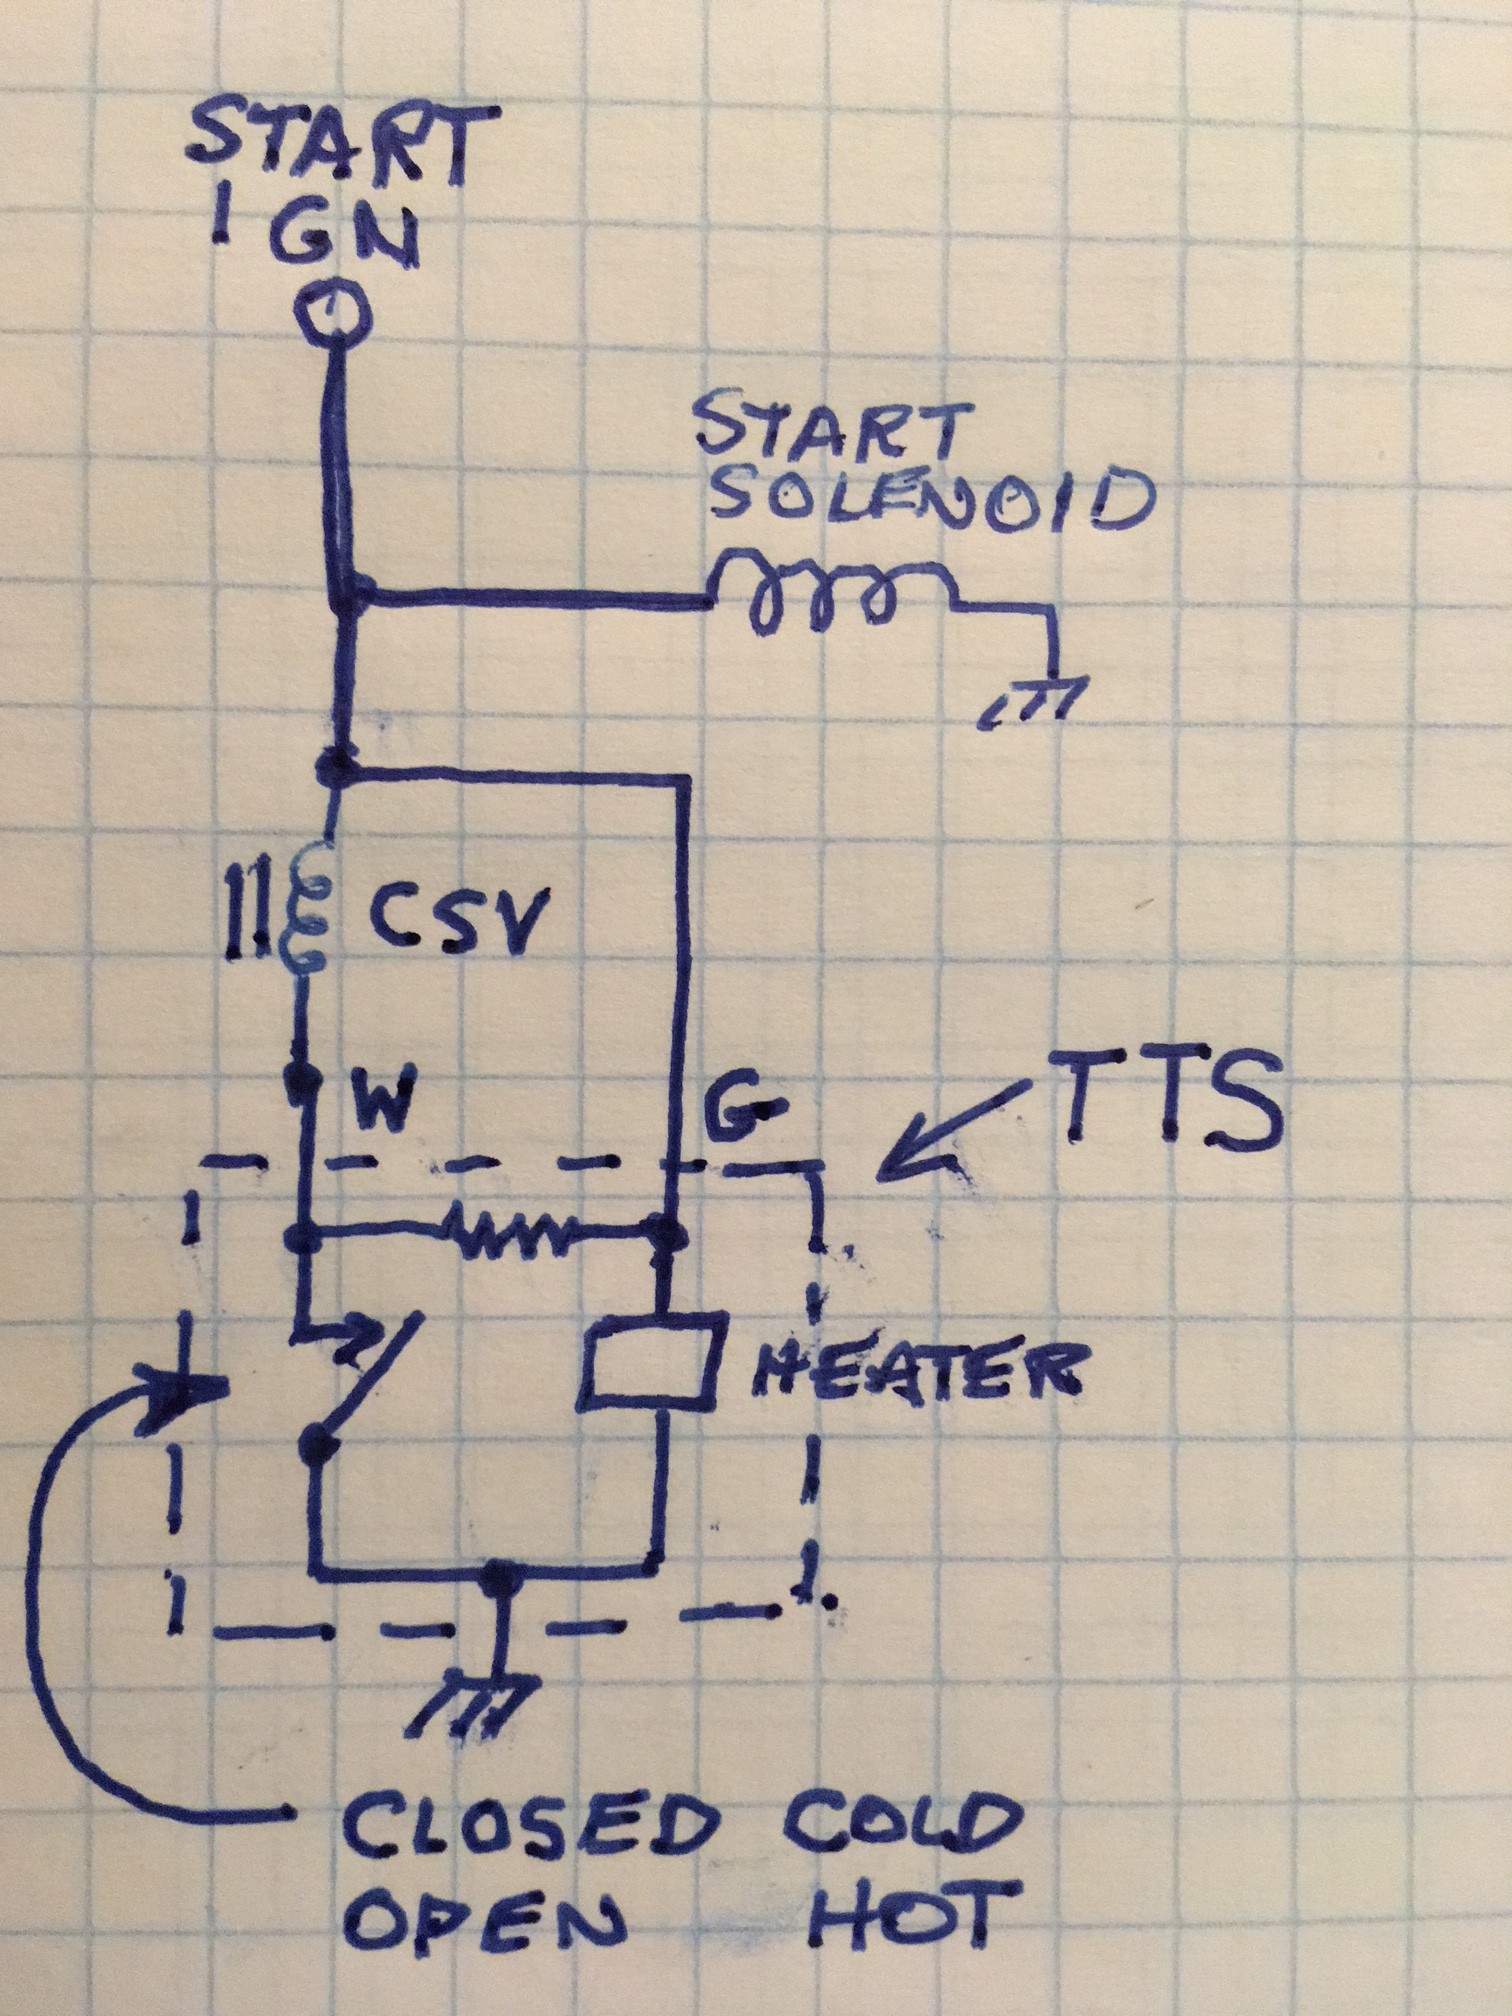 START
IGN
START
SOLENOID
CSV
W
G
TTS
HEATER
CLOSED COLD
OPEN HOT